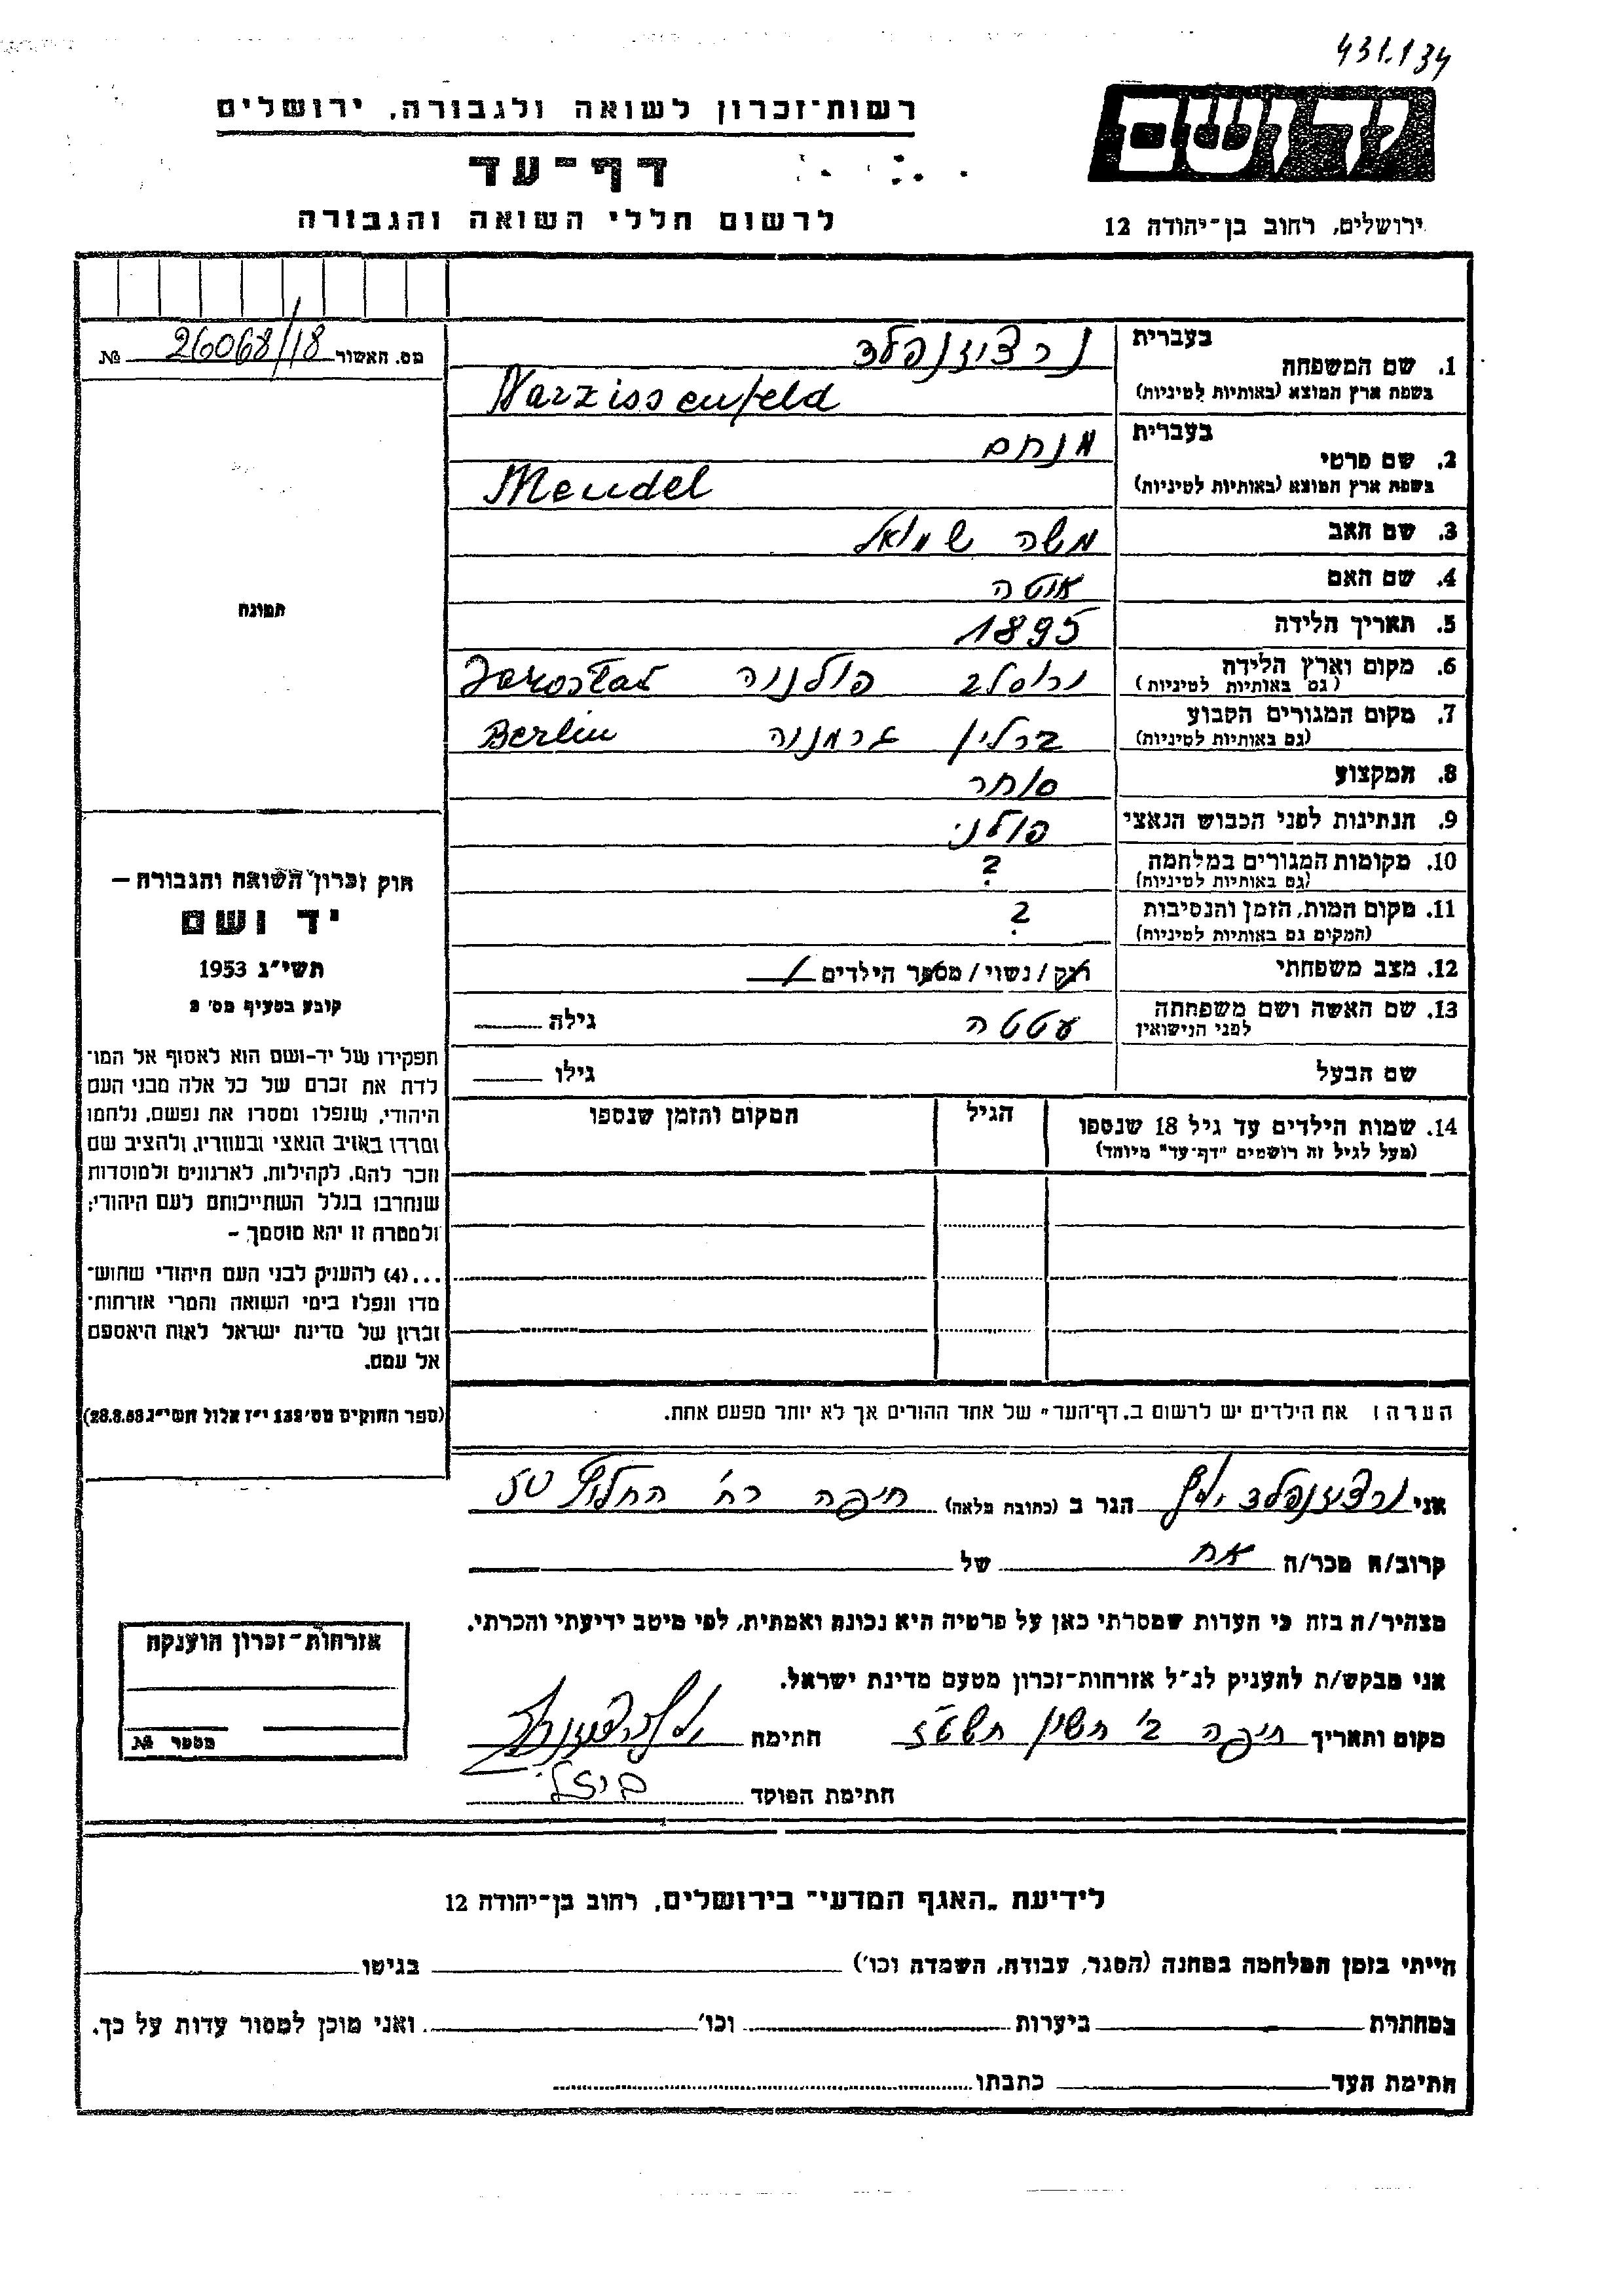 431.134
יד ושם
רשות־זכרון לשואה ולגבורה, ירושלים
דף־עד
לרשום חללי השואה והגבורה
ירושלים, רחוב בן־יהודה 12
מס. האשור 26068/18 №
בעברית נרציזנפלד
1. שם המשפחה
בשפת ארץ המוצא (באותיות לטיניות) Narzissenfeld
בעברית מנחם
2. שם פרטי
בשפת ארץ המוצא (באותיות לטיניות) Mendel
3. שם האב משה שמואל
4. שם האם
5. תאריך הלידה 1895
6. מקום וארץ הלידה ירוסלב פולניה
(גם באותיות לטיניות)
7. מקום המגורים הקבוע ברלין גרמניה Berlin
(גם באותיות לטיניות)
8. המקצוע סוחר
9. הנתינות לפני הכבוש הנאצי פולני
10. מקומות המגורים במלחמה ?
(גם באותיות לטיניות)
11. מקום המות, הזמן והנסיבות ?
(המקום גם באותיות לטיניות)
12. מצב משפחתי רוק/נשוי/מספר הילדים
13. שם האשה ושם משפחתה גילה
לפני הנישואין
שם הבעל גילו
14. שמות הילדים עד גיל 18 שנספו הגיל המקום והזמן שנספו
(מעל לגיל זה רושמים "דף־עד" מיוחד)
תמונה
חוק זכרון השואה והגבורה –
יד ושם
תשי״ג 1953
קובע בסעיף מס׳ 2
תפקידו של יד-ושם הוא לאסוף אל המו־
לדת את זכרם של כל אלה מבני העם
היהודי, שנפלו ומסרו את נפשם, נלחמו
ומרדו באויב הנאצי ובעוזריו, ולהציב שם
וזכר להם, לקהילות, לארגונים ולמוסדות
שנחרבו בגלל השתייכותם לעם היהודי;
ולמטרה זו יהא מוסמך, –
...(4) להעניק לבני העם היהודי שהוש־
מדו ונפלו בימי השואה והמרי אזרחות־
זכרון של מדינת ישראל לאות היאספם
אל עמם.
(ספר החוקים מס׳ 132 י״ז אלול תשי״ג 28.8.53)
הערה: את הילדים יש לרשום ב„דף־העד" של אחד ההורים אך לא יותר מפעם אחת.
אני הגר ב (כתובת מלאה) חיפה רח׳ החלוץ 50
קרוב/ה מכר/ה אח של
מצהיר/ה בזה כי העדות שמסרתי כאן על פרטיה היא נכונה ואמתית, לפי מיטב ידיעתי והכרתי.
אני מבקש/ת להעניק לנ״ל אזרחות־זכרון מטעם מדינת ישראל.
מקום ותאריך חיפה ב׳ חשון תשט״ז חתימה
חתימת הפוקד
אזרחות־זכרון הוענקה
מספר №
לידיעת „האגף המדעי" בירושלים, רחוב בן־יהודה 12
הייתי בזמן המלחמה במחנה (הסגר, עבודה, השמדה וכו׳) בגיטו
במחתרת ביערות וכו׳ ואני מוכן למסור עדות על כך.
חתימת העד כתבתו